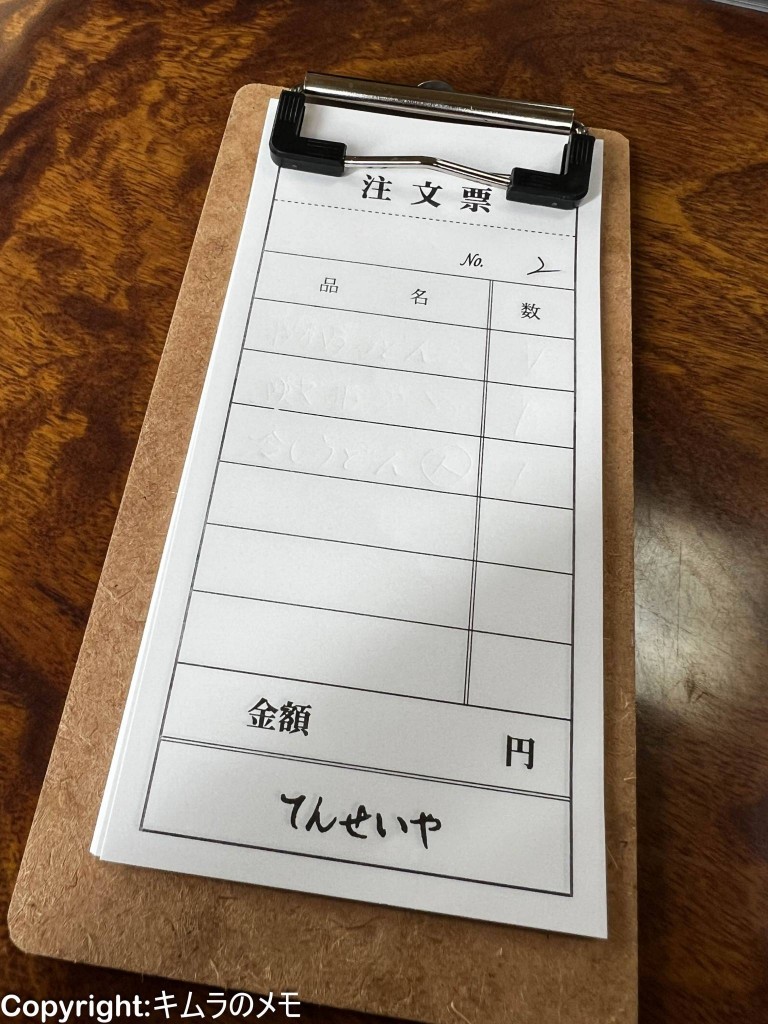 注文票
No. 2
品名 数
金額 円
てんせいや
Copyright:キムラのメモ